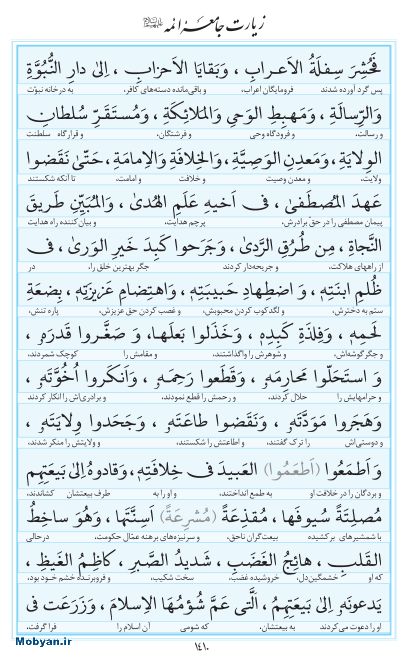 زیارت جامعهٔ ائمه
فَحُشِرَ سِفلَةُ الاَعرابِ ، وَبَقایَا الاَحزابِ ، اِلیٰ دارِ النُّبُوَّةِ
پس گرد آورده شدند فرومایگان اعراب، و باقی‌مانده دسته‌های کافر، به در خانه نبوّت
وَالرِّسالَةِ ، وَمَهبِطِ الوَحیِ وَالمَلائِکَةِ ، وَمُستَقَرِّ سُلطانِ
و رسالت، و فرودگاه وحی و فرشتگان، و قرارگاه سلطنت
الوِلایَةِ ، وَمَعدِنِ الوَصِیَّةِ ، وَالخِلافَةِ وَالاِمامَةِ ، حَتّیٰ نَقَضوا
ولایت، و معدن وصیت و خلافت و امامت، تا آنکه شکستند
عَهدَ المُصطَفیٰ ، فی اَخیهِ عَلَمِ الهُدیٰ ، وَالمُبَیِّنِ طَریقَ
پیمان مصطفی را در حقّ برادرش، پرچم هدایت، و بیان کننده راه هدایت
النَّجاةِ ، مِن طُرُقِ الرَّدیٰ ، وَجَرَحوا کَبِدَ خَیرِ الوَریٰ ، فی
از راههای هلاکت، و جریحه‌دار کردند جگر بهترین خلق را، در
ظُلمِ ابنَتِهٖ ، وَ اضطِهادِ حَبیبَتِهٖ ، وَاهتِضامِ عَزیزَتِهٖ ، بِضعَةِ
ستم به دخترش، و لگدکوب کردن محبوبش، و غصب کردن حق عزیزش، پاره تنش،
لَحمِهٖ ، وَفِلذَةِ کَبِدِهٖ ، وَخَذَلوا بَعلَها، وَ صَغَّروا قَدرَهٗ ،
و جگرگوشه‌اش، و شوهرش را واگذاشتند، و مقامش را کوچک شمردند،
وَ استَحَلّوا مَحارِمَهٗ ، وَقَطَعوا رَحِمَهٗ ، وَاَنکَروا اُخُوَّتَهٗ ،
و حرامهایش را حلال کردند، و رحمش را قطع نمودند، و برادری‌اش را انکار کردند
وَهَجَروا مَوَدَّتَهٗ ، وَنَقَضوا طاعَتَهٗ ، وَجَحَدوا وِلایَتَهٗ ،
و دوستی‌اش را ترک گفتند، و اطاعتش را شکستند، و ولایتش را منکر شدند،
وَ اَطمَعُوا (اَطعَمُوا) العَبیدَ فی خِلافَتِهٖ، وَقادوهُ اِلیٰ بَیعَتِهِم
و بردگان را در خلافت او به طمع انداختند، و او را به طرف بیعتشان کشاندند،
مُصلِتَةً سُیوفَها ، مُقذِعَةً (مُشرِعَةً) اَسِنَّتَها ، وَهُوَ ساخِطُ
با شمشیرهای برکشیده بیعت‌گران ناحق، و سرنیزه‌های برهنه عمّال حکومت، درحالی
القَلبِ ، هائِجُ الغَضَبِ ، شَدیدُ الصَّبرِ ، کاظِمُ الغَیظِ ،
که او خشمگین‌دل، خروشیده غضب، سخت شکیب، و فروبرنده خشم خود بود،
یَدعونَهٗ اِلیٰ بَیعَتِهِمُ ، الَّتی عَمَّ شُؤمُهَا الاِسلامَ ، وَزَرَعَت فی
او را دعوت می‌کردند به بیعتشان. که شومی آن اسلام را فرا گرفت،
Mobyan.ir
١٤١٠